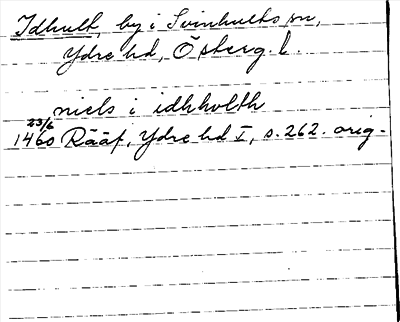 Idhult, by i Svinhults sn,
Ydre hd, Österg. l.
niels i idhholth
23/6
1460 Rääf, Ydre hd I, s. 262. orig-